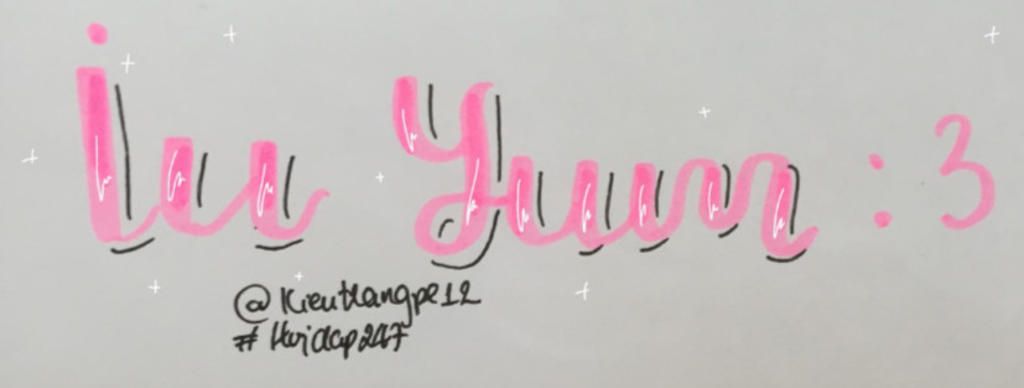 iu Yum :3
@kieutrangpe12
#Hoidap247